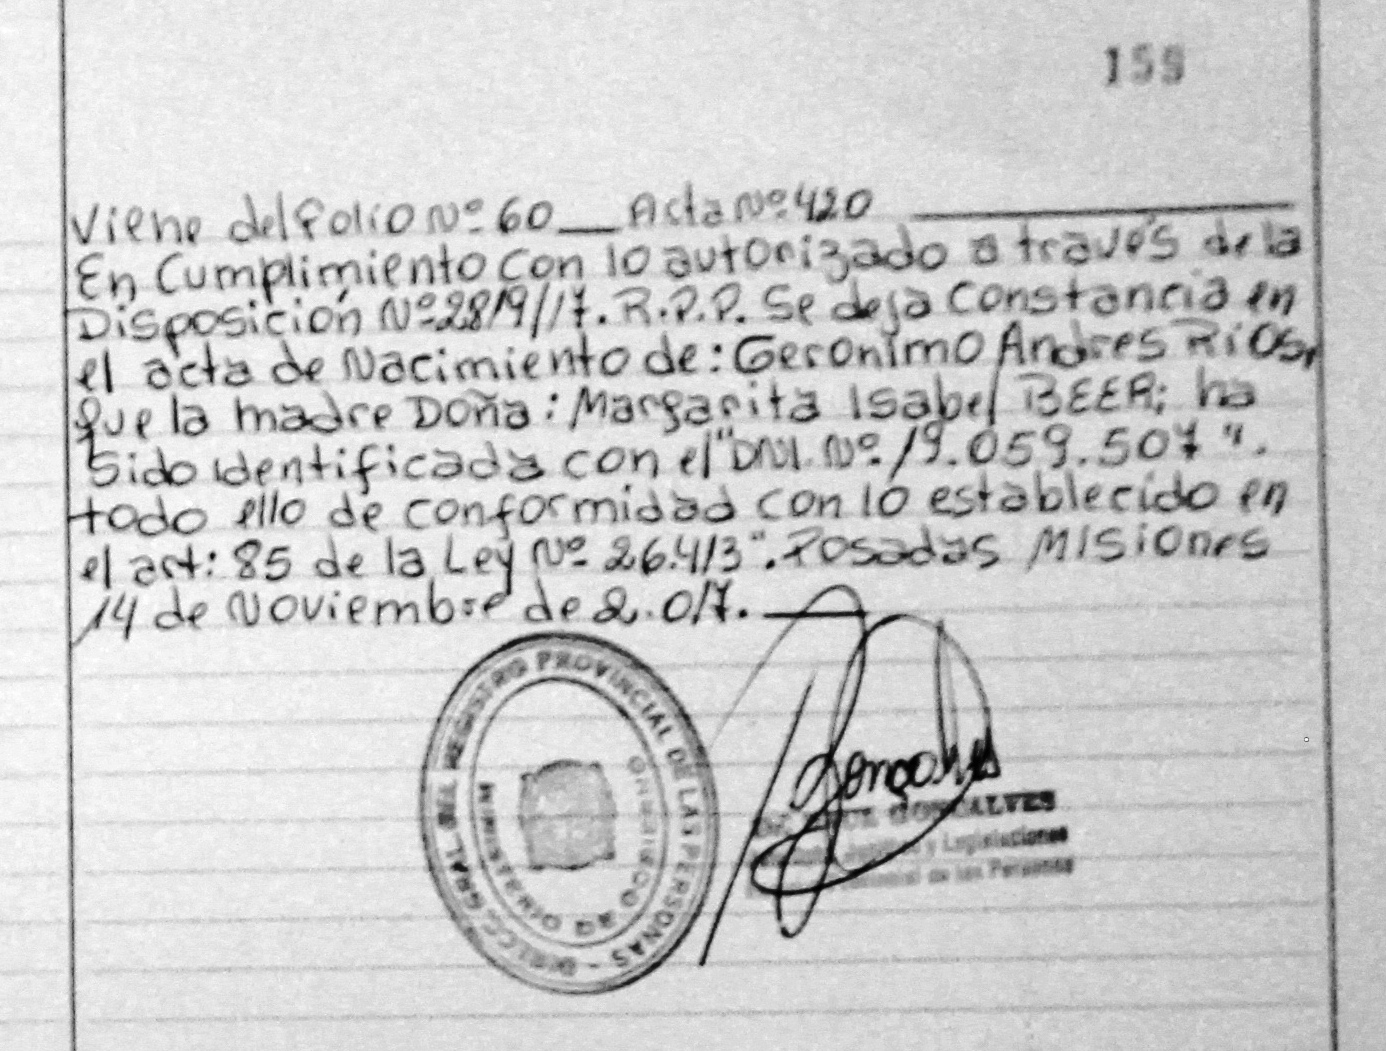 159
Viene del folio Nº 60 __ Acta Nº 420 ______
En Cumplimiento con lo autorizado a través de la
Disposición Nº 2819/17. R.P.P. Se deja constancia en
el acta de Nacimiento de: Geronimo Andres Rios,
que la madre Doña: Margarita Isabel BEER; ha
sido identificada con el "DNI. Nº. 19.059.507".
todo ello de conformidad con lo establecido en
el art: 85 de la Ley Nº 26.413". Posadas Misiones
14 de Noviembre de 2.017. ___
REGISTRO PROVINCIAL DE LAS PERSONAS - DIRECC. GRAL. DEL
MINISTERIO DE GOBIERNO
Gonçalves
GONCALVES
y Legislaciones
de las Personas